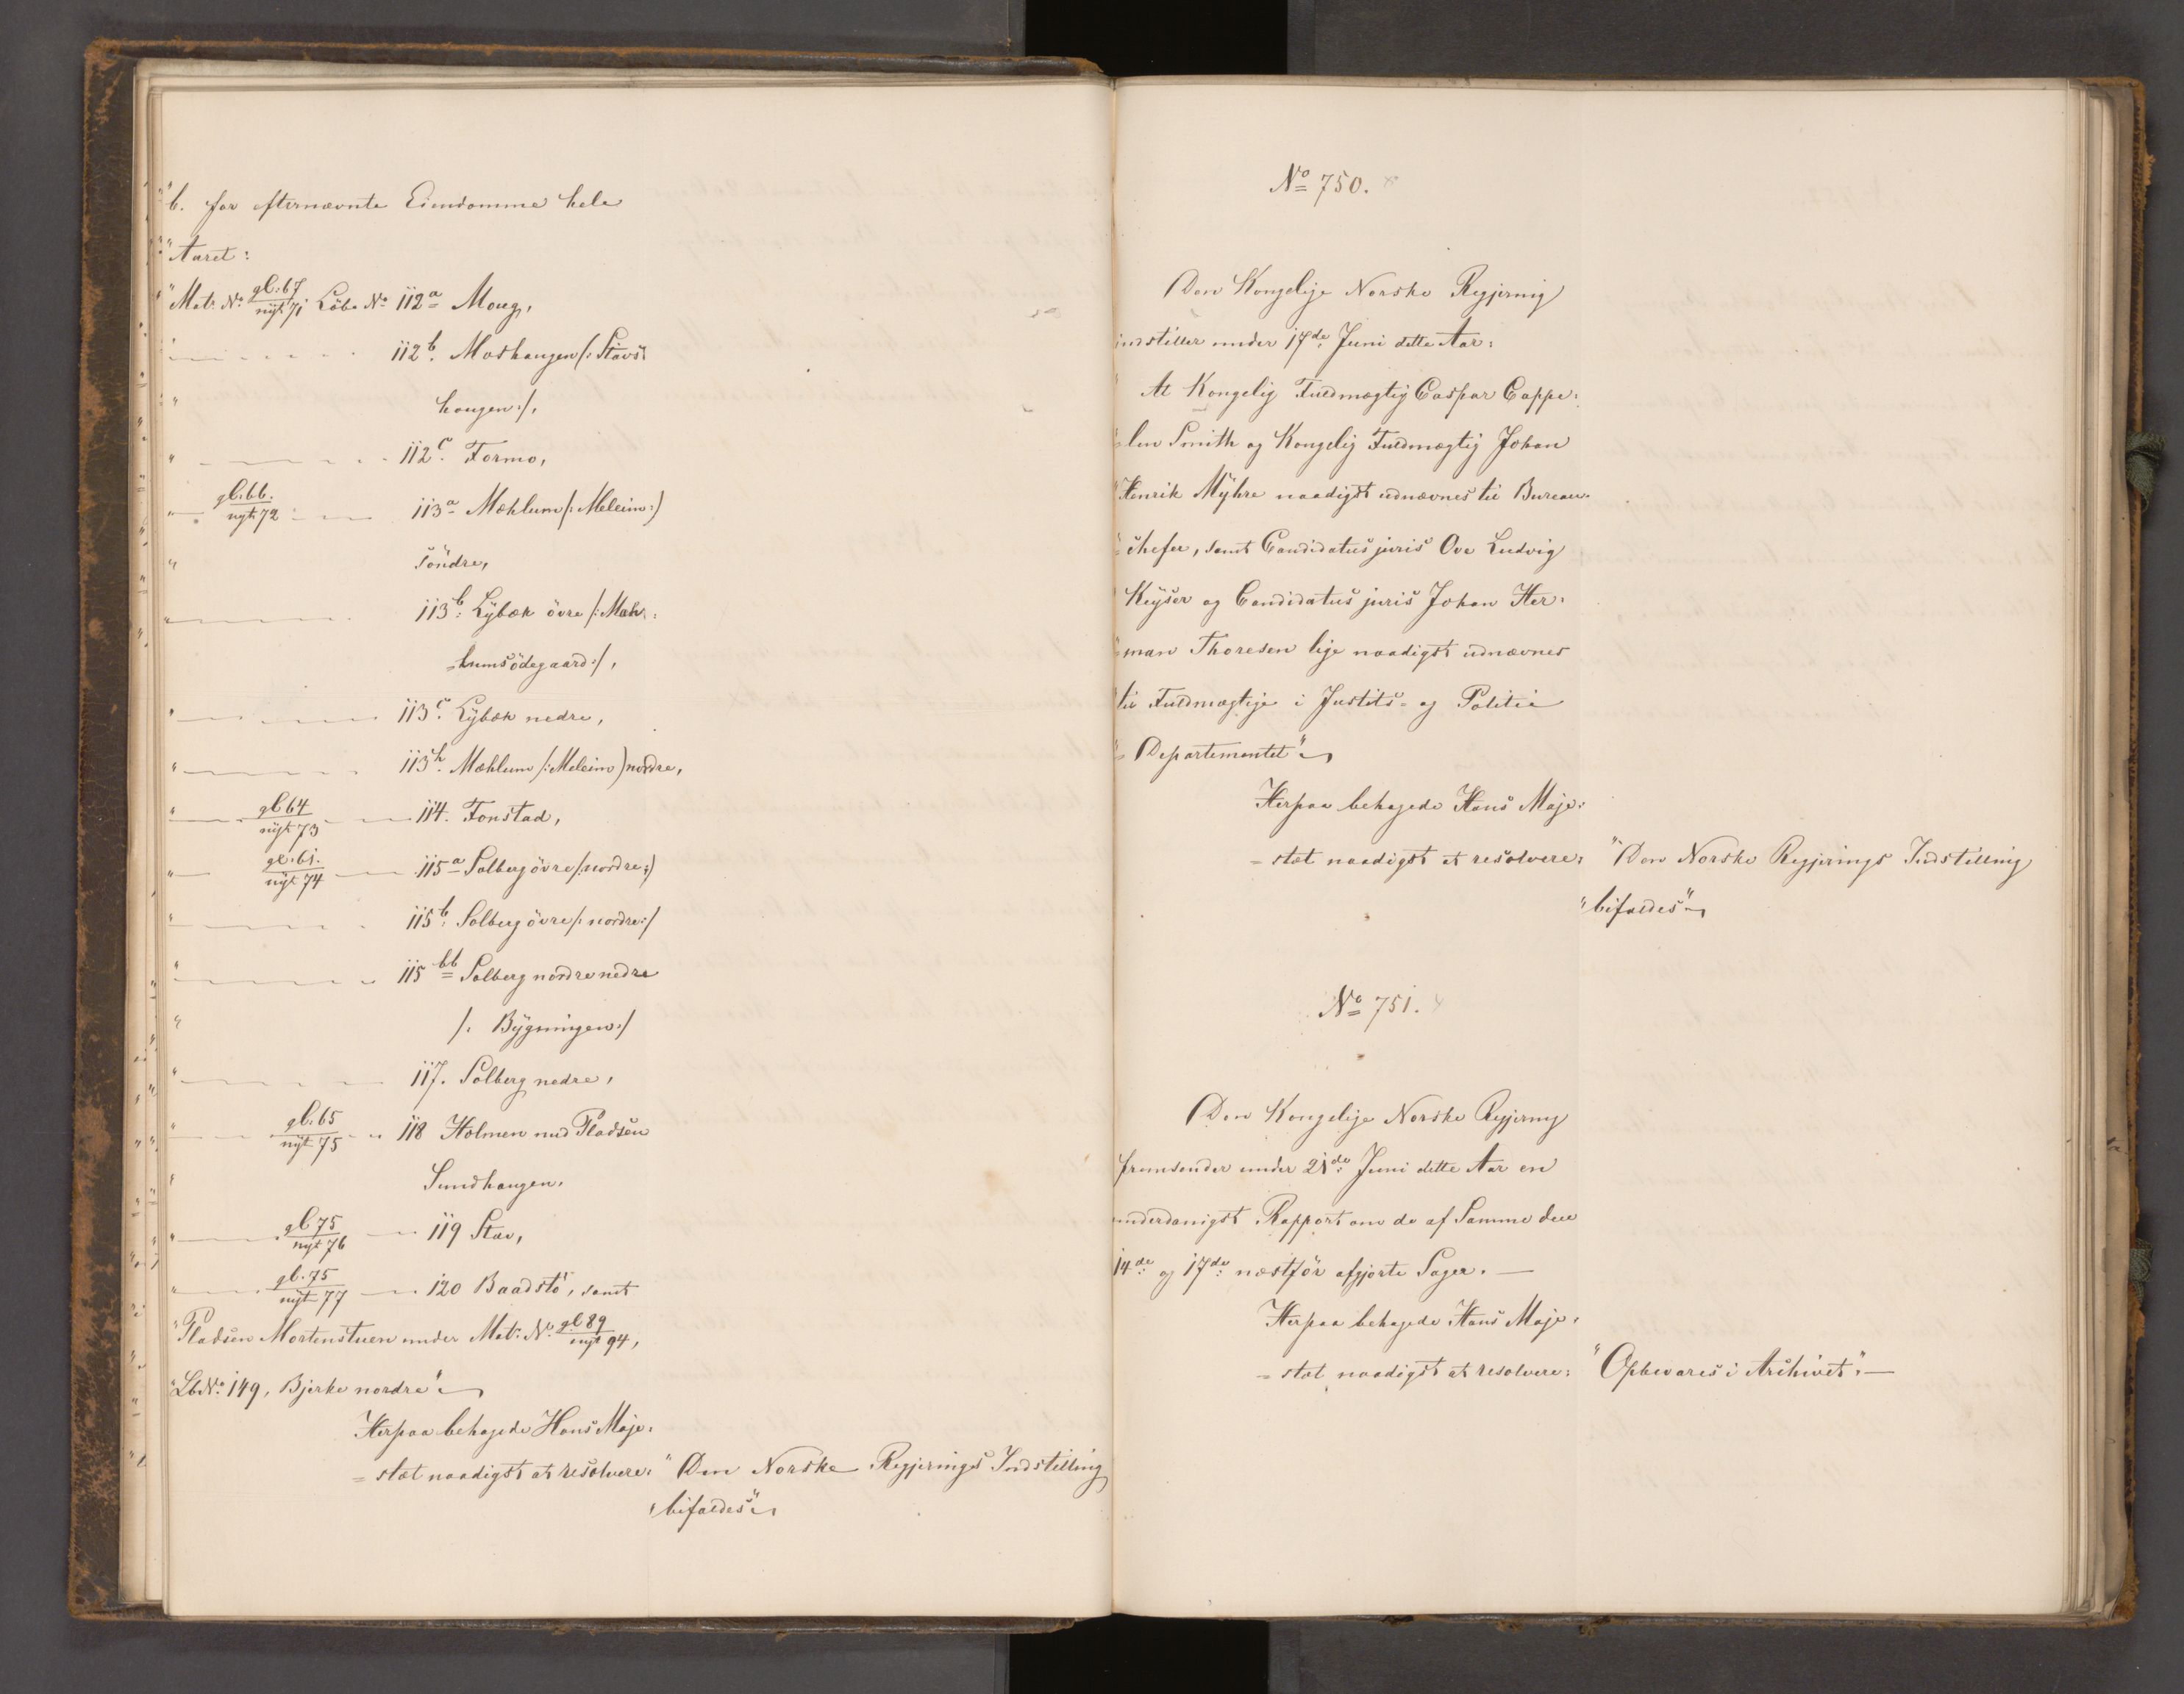 "b. for efternævnte Eiendomme hele
" Aaret:
" Matr. No. gl: 67 / nyt 71 Löbe No 112a Moug,
" 112b. Moshaugen /: Stavs:
" haugen :/,
" 112c. Formo,
" gl. 66. / nyt. 72 113a Mæhlum /: Meleim :)
" Söndre,
" 113b: Lybæk övre /: Mæh:
= lumsödegaard :/,
" 113c. Lybæk nedre,
" 113h. Mæhlum /: Meleim ) nordre,
" gl 64 / nyt 73 114. Fonstad,
" gl. 61. / nyt 74 115a Solberg övre /: nordre :)
" 115b: Solberg övre /: nordre :/
" 115bb Solberg nordre nedre
" /: Bygningen :/
" 117. Solberg nedre,
" gl. 65 / nyt 75 118 Holmen med Pladsen
" Sundhaugen,
" gl 75 / nyt 76 119 Stav,
" gl. 75 / nyt 77 120 Baadstö, samt
" Pladsen Mortenstuen under Mat: No. gl 89 / nyt 94,
" Lb No. 149, Bjerke nordre"
Herpaa behagede Hans Maje:
= stæt naadigst at resolvere: "Den Norske Regjerings Indstilling
"bifaldes"
No 750.
Den Kongelige Norske Regjering
indstiller under 17de Juni dette Aar:
" At Kongelig Fuldmægtig Caspar Cappe:
= len Smith og Kongelig Fuldmægtig Johan
"Henrik Myhre naadigst udnævnes til Bureau-
= chefer, samt Candidatus juris Ove Ludvig
" Keyser og Candidatus juris Johan Her:
= man Thoresen lige naadigst udnævnes
"til Fuldmægtige i Justits- og Politie
= Departementet"
Herpaa behagede Hans Maje:
= stæt naadigst at resolvere: "Den Norske Regjerings Indstilling
"bifaldes"
No 751.
Den Kongelige Norske Regjering
fremsender under 21de Juni dette Aar en
underdanigst Rapport om de af Samme den
14de og 17de næstför afgjorte Sager. —
Herpaa behagede Hans Maje:
= stæt naadigst at resolvere: "Opbevares i Archivet". —